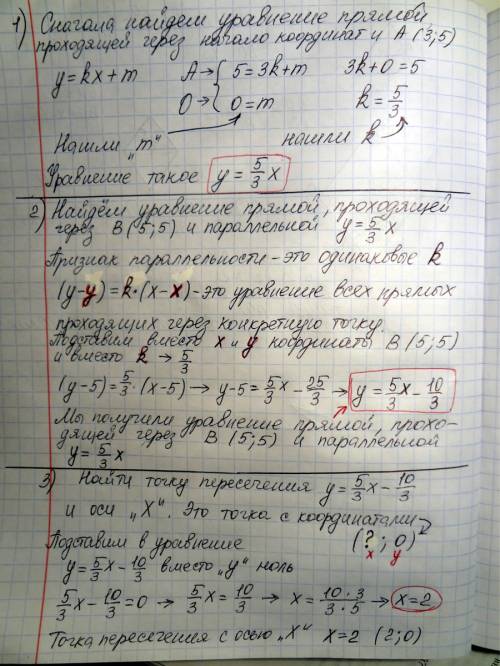 1) Сначала найдем уравнение прямой
проходящей через начало координат и A (3;5)
y=kx+m A→ { 5=3k+m 3k+0=5
O→ { 0=m k=5/3
Нашли „m" нашли k
Уравнение такое y=5/3x
2) Найдём уравнение прямой, проходящей
через B(5;5) и параллельной y=5/3x
Признак параллельности - это одинаковые k
(y-y)=k·(x-x)-это уравнение всех прямых
проходящих через конкретную точку.
Подставим вместо x и y координаты B(5;5)
и вместо k → 5/3
(y-5)=5/3·(x-5)→ y-5=5/3x-25/3 → y=5/3x-10/3
Мы получили уравнение прямой, прохо-
дящей через B(5;5) и параллельной
y=5/3x
3) Найти точку пересечения y=5/3x-10/3
и оси „X". Это точка с координатами
Подставим в уравнение (?;0)
x y
y=5/3x-10/3 вместо „y" ноль
5/3x-10/3=0 → 5/3x=10/3 → x=10·3/3·5 → x=2
Точка пересечения с осью „X" x=2 (2;0)